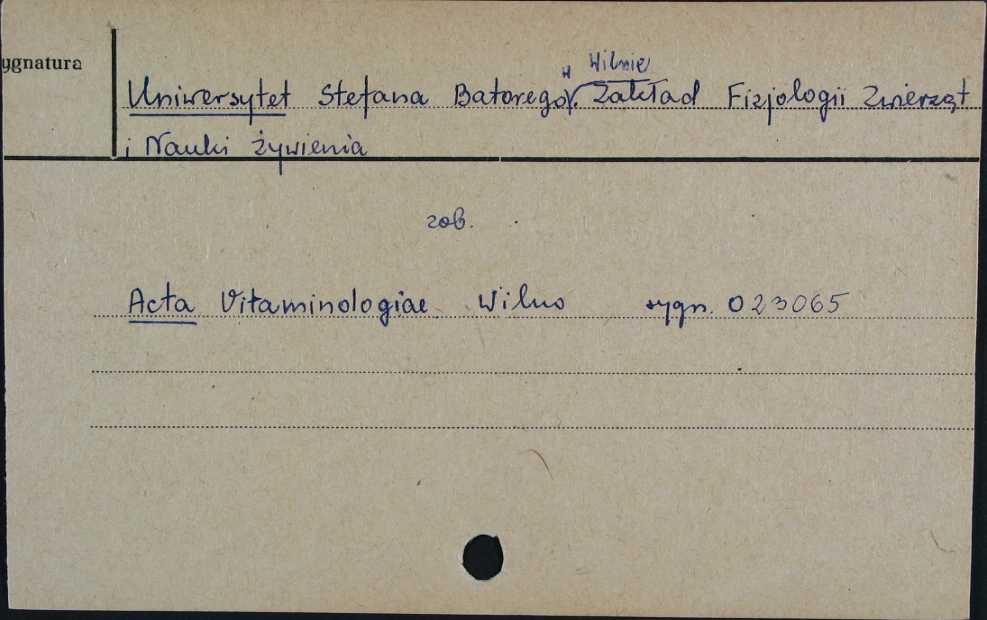 ygnatura
w Wilnie
Uniwersytet Stefana Batorego. Zakład Fizjologii Zwierząt
i Nauki Żywienia
zob.
Acta Vitaminologiae. Wilno sygn. 023065